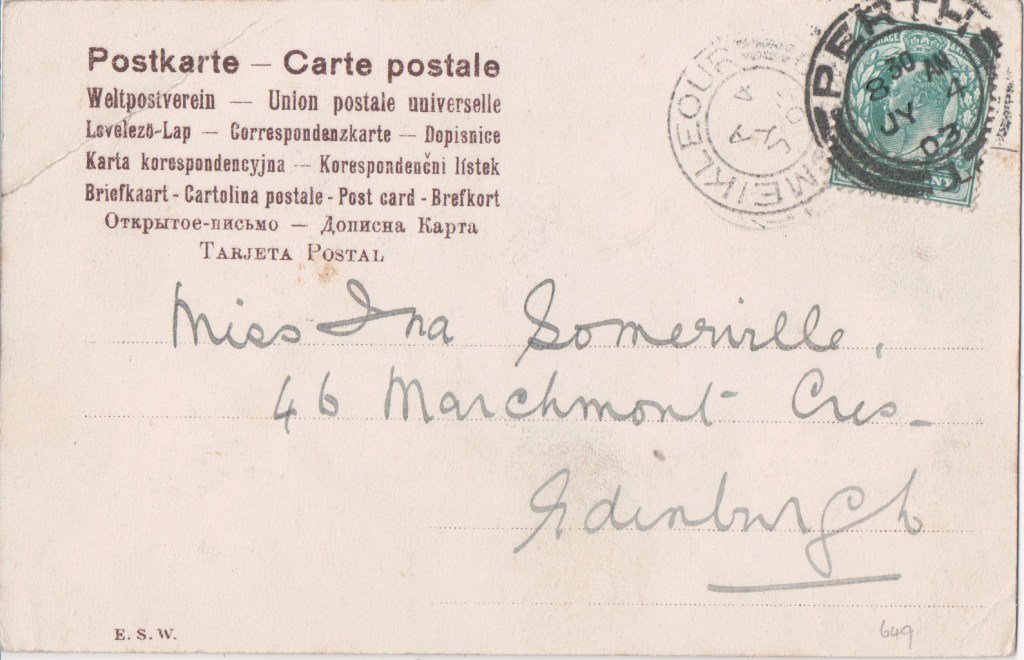 Postkarte – Carte postale
Weltpostverein — Union postale universelle
Levelező-Lap — Correspondenzkarte — Dopisnice
Karta korespondencyjna — Korespondenční lístek
Briefkaart - Cartolina postale - Post card - Brefkort
Открытое-письмо — Дописна Карта
Tarjeta Postal
MEIKLEOUR
A
JY 4
03
PERTH
8.30 AM
JY 4
03
NY
Miss Ina Somerville,
46 Marchmont Cres-
Edinburgh
E. S. W.
649